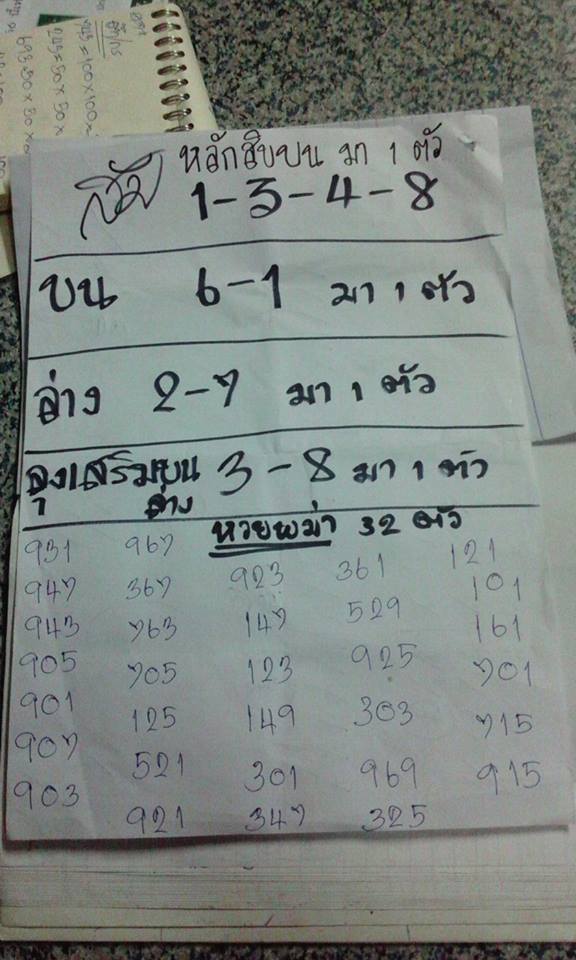 หลักสิบบน มา 1 ตัว
1-3-4-8
บน 6-1 มา 1 ตัว
ล่าง 2-7 มา 1 ตัว
ลุงเสริมบน 3-8 มา 1 ตัว
ล่าง
หวยพม่า 32 ตัว
931 967 923 361 121
947 367 147 529 101
943 763 123 925 161
905 705 149 303 701
901 125 301 969 715
907 521 347 325 915
903 921